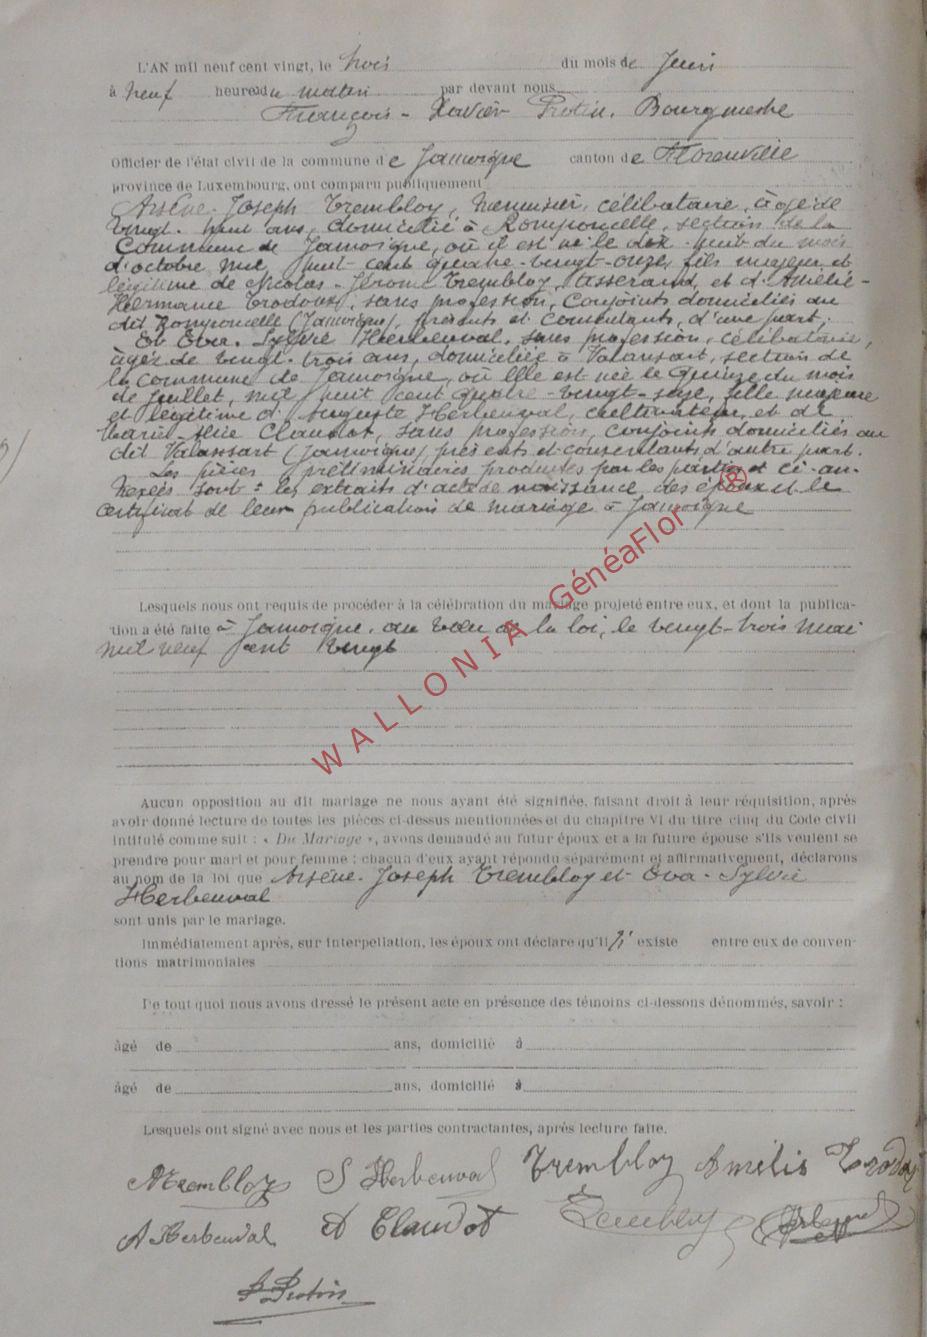 L'AN mil neuf cent vingt, le trois du mois de Juin
à neuf heures du matin par devant nous
François - Xavier Protin, Bourgmestre
Officier de l'état civil de la commune de Jamoigne canton de Florenville
province de Luxembourg, ont comparu publiquement
Arsène - Joseph Trembloy, Menuisier, célibataire, âgé de
vingt - huit ans, domicilié à Romponcelle, section de la
Commune de Jamoigne, où il est né le dix - huit du mois
d'octobre mil huit - cent quatre - vingt - onze, fils majeur et
légitime de Nicolas - Jérome Trembloy, et d'Amélie -
Hermance Trodoux, sans profession, Conjoints domiciliés au
dit Romponcelle (Jamoigne), présents et consentants, d'une part,
Et Eva - Sylvie Herbeuval, sans profession, célibataire,
âgée de vingt - trois ans, domiciliée à Valansart, section de
la commune de Jamoigne, où elle est née le quinze du mois
de juillet, mil huit cent quatre - vingt - seize, fille majeure
et légitime d'Auguste Herbeuval, cultivateur, et de
Marie - Alice Claudot, sans profession, conjoints domiciliés au
dit Valansart (Jamoigne) présents et consentants d'autre part.
Les pièces préliminaires produites par les parties et ci-an-
nexées sont : les extraits d'acte de naissance des époux et le
certificat de leur publication de mariage à Jamoigne
WALLONIA GénéaFlor ®
Lesquels nous ont requis de procéder à la célébration du mariage projeté entre eux, et dont la publica-
tion a été faite à Jamoigne, au vœu de la loi, le vingt-trois mai
mil neuf cent vingt
Aucun opposition au dit mariage ne nous ayant été signifiée, faisant droit à leur réquisition, après
avoir donné lecture de toutes les pièces ci-dessus mentionnées et du chapitre VI du titre cinq du Code civil
intitulé comme suit : « Du Mariage », avons demandé au futur époux et a la future épouse s'ils veulent se
prendre pour mari et pour femme ; chacun d'eux ayant répondu séparément et affirmativement, déclarons
au nom de la loi que Arsène - Joseph Trembloy et Eva - Sylvie
Herbeuval
sont unis par le mariage.
Immédiatement après, sur interpellation, les époux ont déclare qu'il existe entre eux de conven-
tions matrimoniales
De tout quoi nous avons dressé le présent acte en présence des témoins ci-dessons dénommés, savoir :
âgé de ans, domicilié à
âgé de ans, domicilié à
Lesquels ont signé avec nous et les parties contractantes, après lecture faite.
A Trembloy S Herbeuval Trembloy Amélie Trodoux
A Herbeuval A Claudot Trembloy
Protin